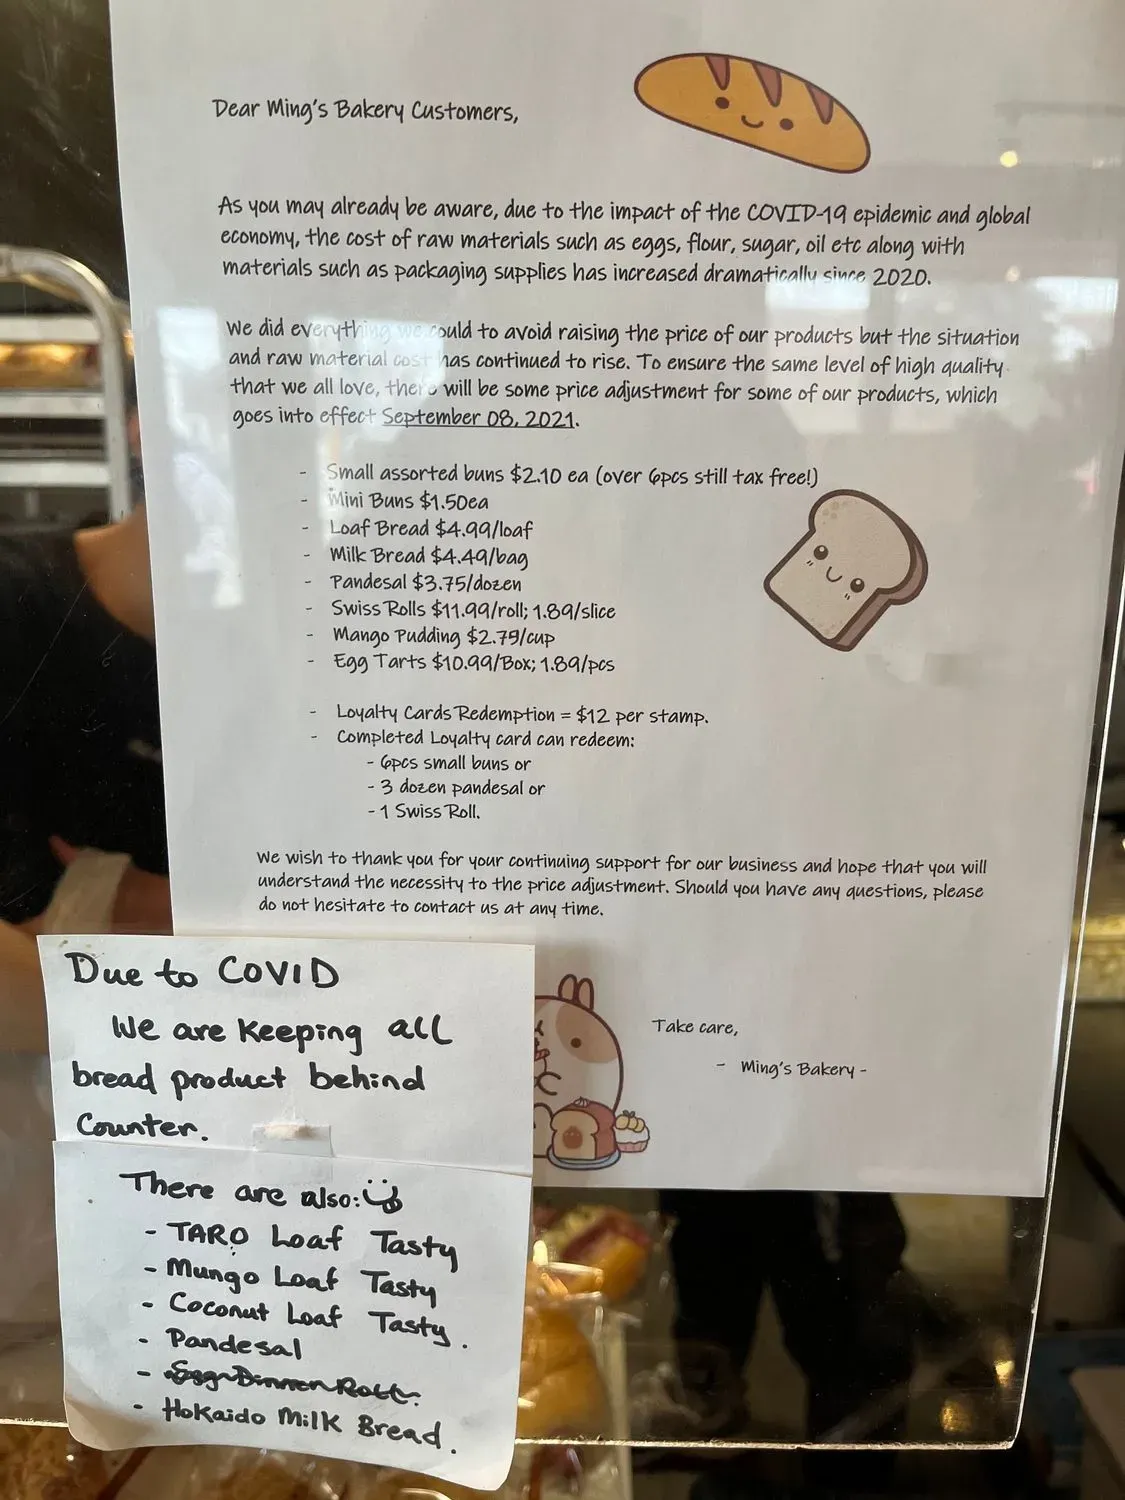 Dear Ming's Bakery Customers,
As you may already be aware, due to the impact of the COVID-19 epidemic and global
economy, the cost of raw materials such as eggs, flour, sugar, oil etc along with
materials such as packaging supplies has increased dramatically since 2020.
We did everything we could to avoid raising the price of our products but the situation
and raw material cost has continued to rise. To ensure the same level of high quality
that we all love, there will be some price adjustment for some of our products, which
goes into effect September 08, 2021.
- Small assorted buns $2.10 ea (over 6pcs still tax free!)
- Mini Buns $1.50ea
- Loaf Bread $4.99/loaf
- Milk Bread $4.49/bag
- Pandesal $3.75/dozen
- Swiss Rolls $11.99/roll; 1.89/slice
- Mango Pudding $2.79/cup
- Egg Tarts $10.99/Box; 1.89/pcs
- Loyalty Cards Redemption = $12 per stamp.
- Completed Loyalty card can redeem:
- 6pcs small buns or
- 3 dozen pandesal or
- 1 Swiss Roll.
We wish to thank you for your continuing support for our business and hope that you will
understand the necessity to the price adjustment. Should you have any questions, please
do not hesitate to contact us at any time.
Take care,
- Ming's Bakery -
Due to COVID
We are Keeping all
bread product behind
Counter.
There are also:
- TARO Loaf Tasty
- Mungo Loaf Tasty
- Coconut Loaf Tasty.
- Pandesal
- Egg Dinner Roll.
- Hokaido Milk Bread.